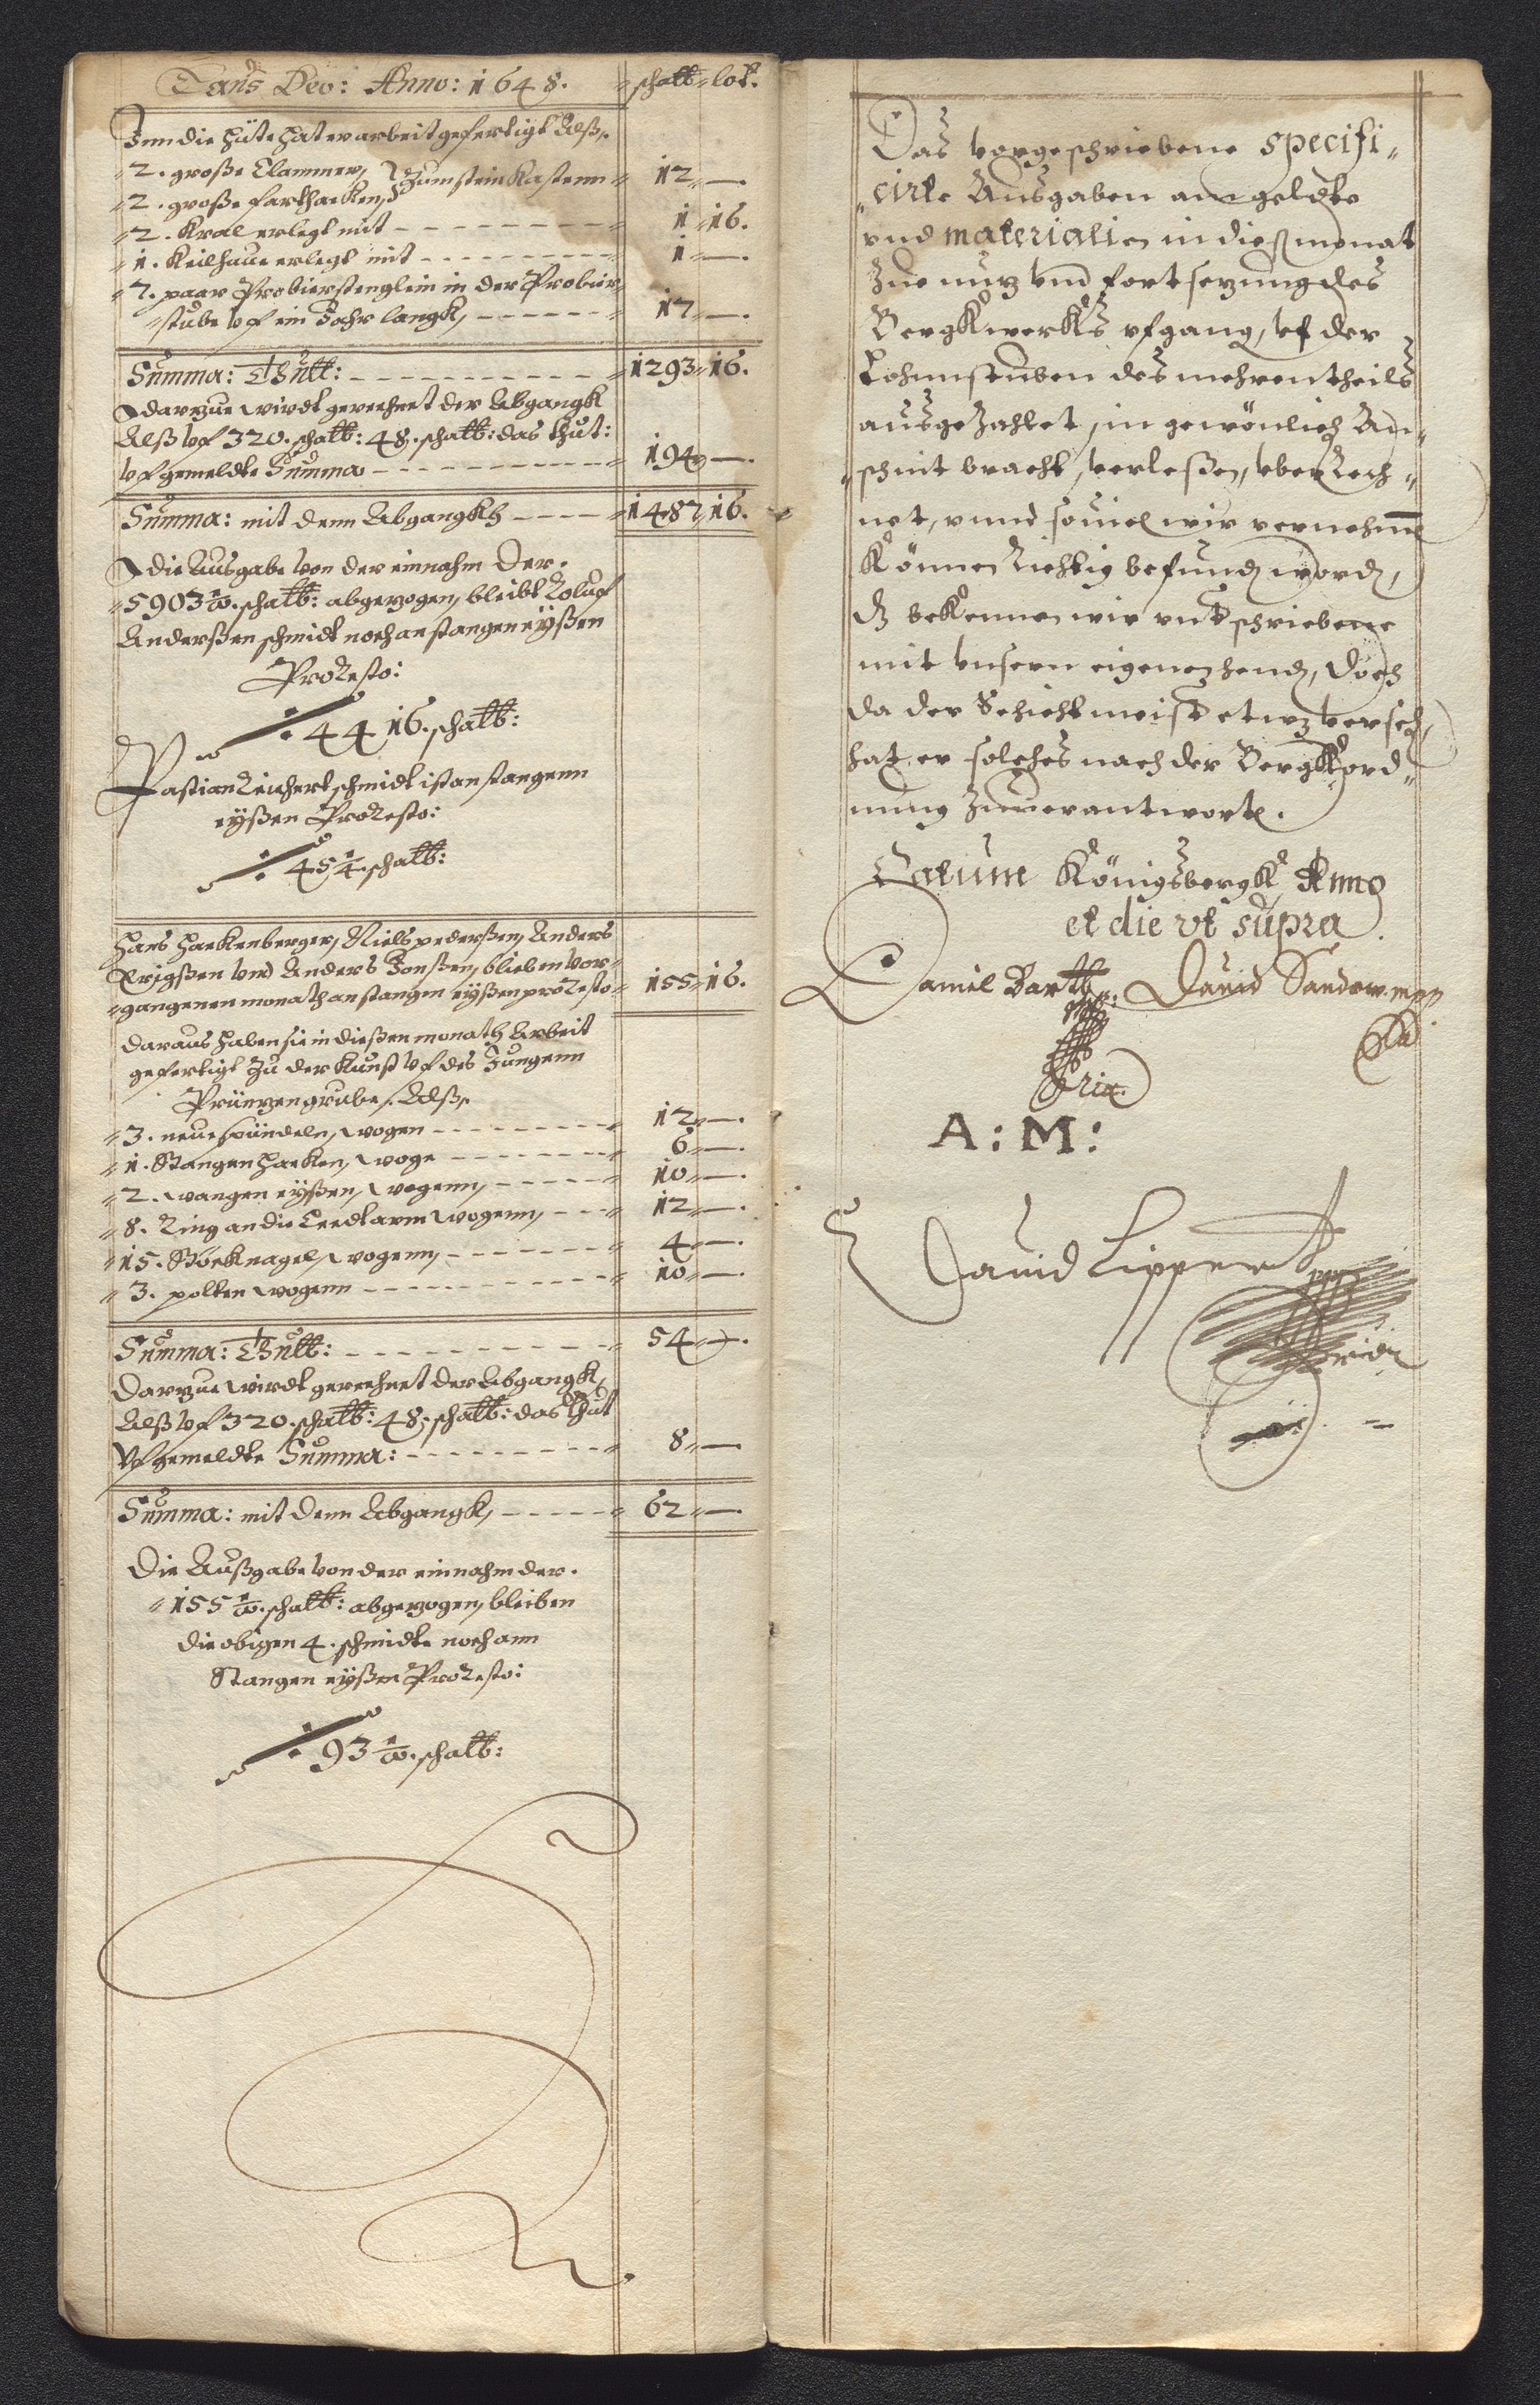 Laus Deo: Anno: 1648. schalb: lot.
Inn die hüte hat er arbeit gefertigt Alß,
2. große Clammer, Zum steinkastenn 12 —.
2. große farthacken,
2. Kral erlegt mit 1 16.
1. Keilhaue erlegt mit 1 —.
7. paar Probierstenglein in der Probier
stube vf ein Jahr langk, 17 —.
Summa: Thutt: 1293 16.
darzue wirdt gerechnet der Abgangk
Alß vf 320. schalb: 48. schalb: das thut:
vf gemeldte Summa 194 —.
Summa: mit denn Abgangkh 1487 16.
die Ausgabe von der einnahm der.
5903 ½. schalb: abgezogen, bleibt Roluf
Anderßen schmidt noch an stangen eyßen
Pro Resto:
4416. schalb:
Pastian Reichert schmidt ist an stangenn
eyßen Pro Resto:
45 ¼. schalb:
Hans Hackenberger, Niels pederßen, Anders
Erigßen vnd Anders Jonßen, blieben vor
gangenen monath an stangen eyßen pro Resto 155 16.
daraus haben sie in dießen monath Arbeit
gefertigt Zu der Kunst vf des Jungenn
Printzen grube, Alß,
3. neue spündeln, wogen 12 —.
1. Stangen hacken, woge 6 —.
2. wangen eyßen, wogenn, 10 —.
8. Ring an die Creützarm wogenn, 12 —.
15. Stöck nagel, wogenn, 4 —.
3. polten wogenn 10 —.
Summa: Thutt: 54 —.
Darzue wirdt gerechnet der Abgangk,
Alß vf 320. schalb: 48. schalb: das thut
Vf gemeldte Summa: 8 —.
Summa: mit denn Abgangk, 62 —.
Die Außgabe von der einnahm der.
155 ½. schalb: abgezogen, bleiben
die obigen 4. schmidte noch ann
Stangen eyßen Pro Resto:
93 ½. schalb:
Das vorgeschriebene specifi
cirte Ausgaben ane geldte
vnd materialien in dieß monat
Zue nutz vnd fortsetzung des
Bergkwerks vfgang, vf der
Lohnnstuben des mehrentheils
ausgezahlet, in gewönlich An
schnit bracht, verleßen, vberrech
net, vnnd souiel wir vernehmen
Können Richtig befunden worden,
dz bekennen wir vnterschriebene
mit vnsern eigenen henden, doch
da der Schichtmeister etwz versehen,
hat er solches nach der Bergkord
nung Zuuerantworten.
Datum Königsbergk Anno
et die vt supra.
Daniel Barth David Sander. mpp
A: M:
David Lippert